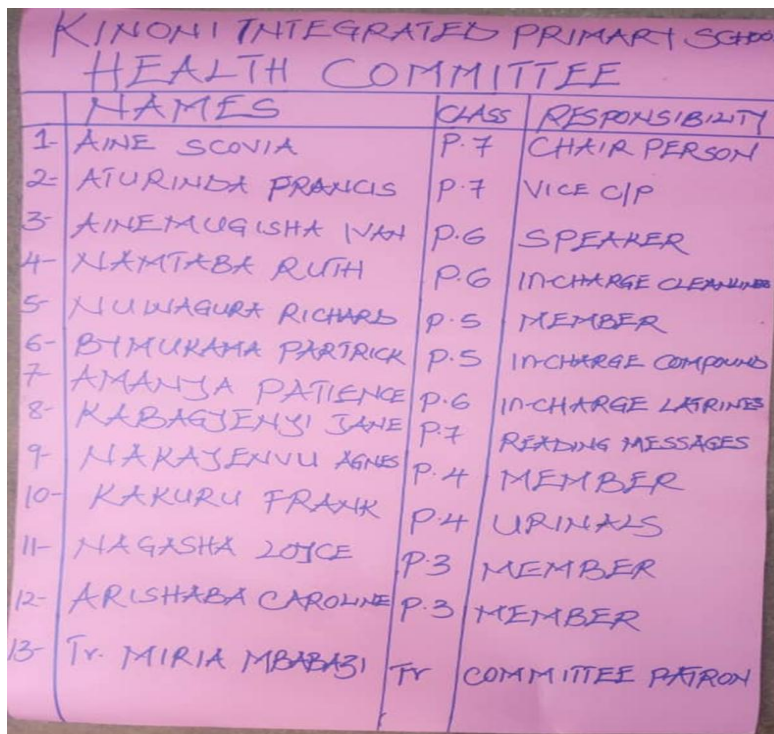 KINONI INTEGRATED PRIMARY SCHOO
HEALTH COMMITTEE
NAMES CLASS RESPONSIBILITY
1- AINE SCOVIA P.7 CHAIR PERSON
2- ATURINDA FRANCIS P.7 VICE C/P
3- AINEMUGISHA IVAN P.6 SPEAKER
4- NAMTABA RUTH P.6 IN-CHARGE CLEANLINES
5- NUWAGURA RICHARD P.5 MEMBER
6- BYMUKAMA PARTRICK P.5 IN-CHARGE COMPOUND
7- AMANYA PATIENCE P.6 IN-CHARGE LATRINES
8- KABAGYENYI JANE P.7 READING MESSAGES
9- NAKAYENVU AGNES P.4 MEMBER
10- KAKURU FRANK P.4 URINALS
11- NAGASHA LOYCE P.3 MEMBER
12- ARISHABA CAROLINE P.3 MEMBER
13- Tr. MIRIA MBABAZI Tr COMMITTEE PATRON